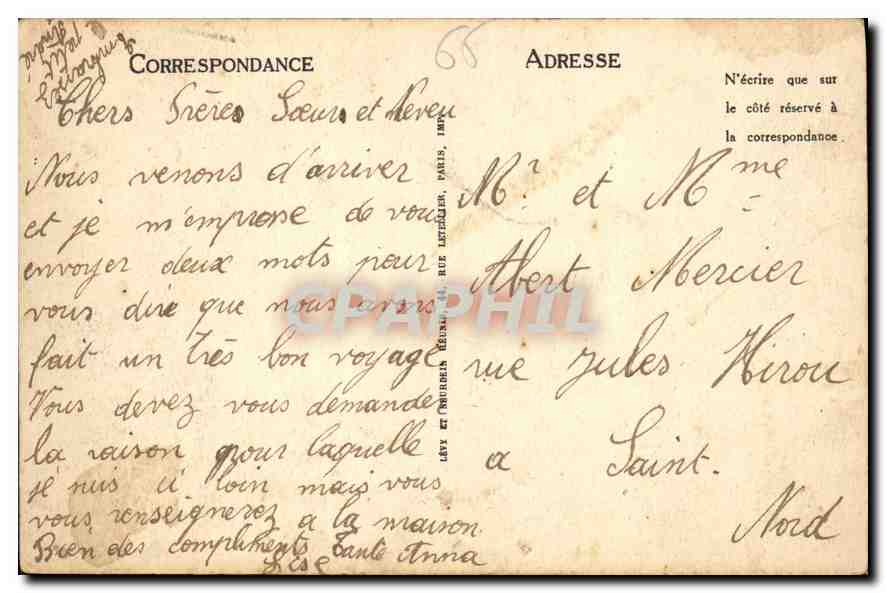 Embrassez
le petit
André
CORRESPONDANCE
Chers Frères Sœurs et Neveu
Nous venons d'arriver
et je m'emprese de vous
envoyer deux mots pour
vous dire que nous avons
fait un très bon voyage
Vous devez vous demander
la raison pour laquelle
je suis si loin mais vous
vous renseignerez a la maison
Bien des compliments Tante Anna
Lise
LÉVY ET NEURDEIN RÉUNIS, 44, RUE LETELLIER, PARIS, IMP.
65
ADRESSE
N'écrire que sur
le côté réservé à
la correspondance.
Mr. et Mme
Abert Mercier
rue Jules Hirou
a Saint.
Nord
CPAPHIL